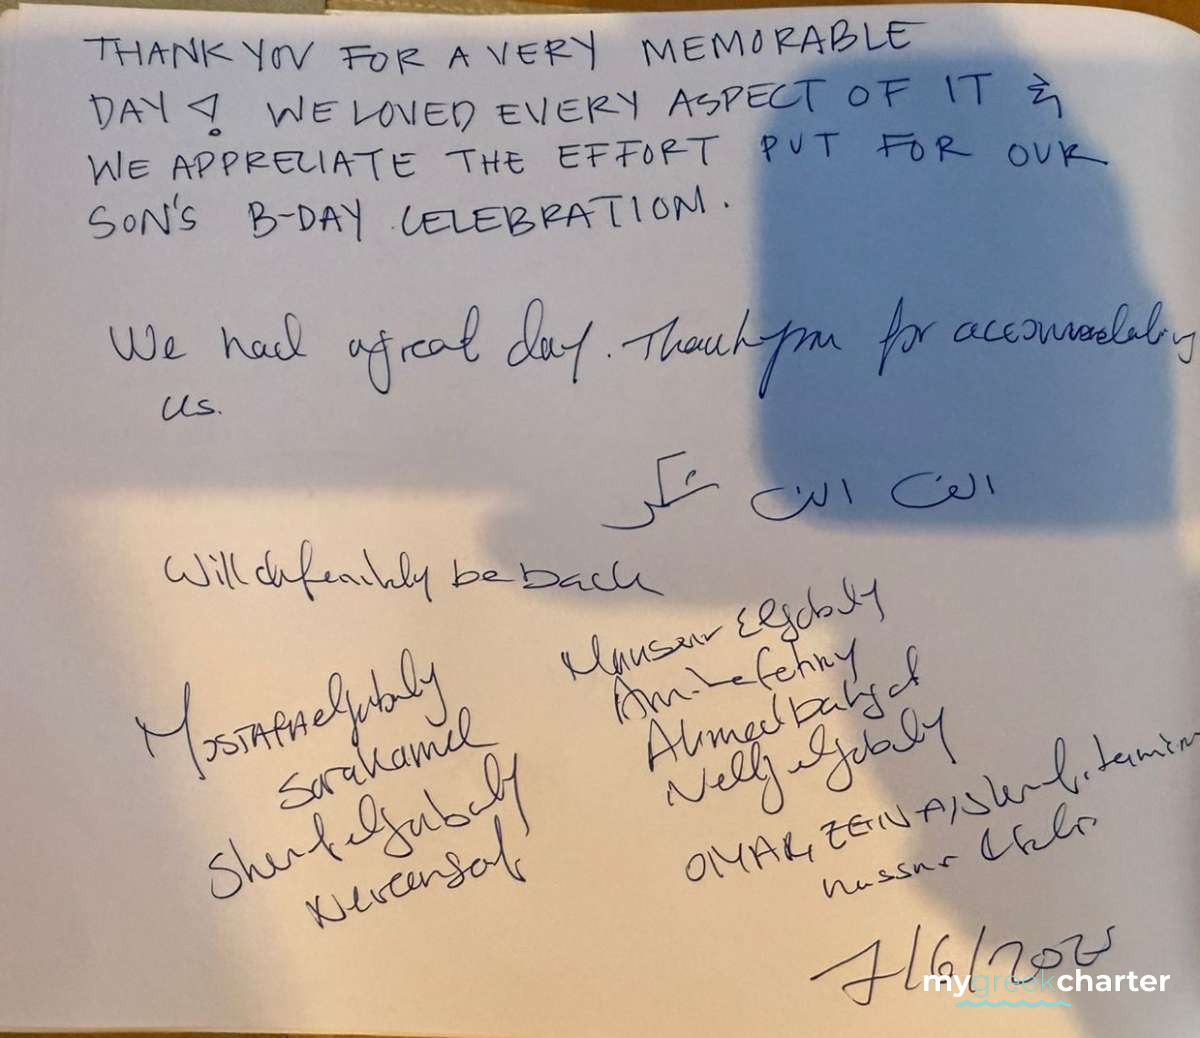 THANK YOU FOR A VERY MEMORABLE
DAY! WE LOVED EVERY ASPECT OF IT &
WE APPRECIATE THE EFFORT PUT FOR OUR
SON'S B-DAY CELEBRATION.
We had a great day. Thank you for accommodating
us.
الف الف شكر
Will defenitely be back
Mansour Elgabaly
Amina fehmy
Ahmed bahgat
Nelly elgabaly
MOSTAFA elgabaly
Sara Kamel
Sherif elgabaly
OMAR, ZEINA,
7/6/2025
mygreekcharter